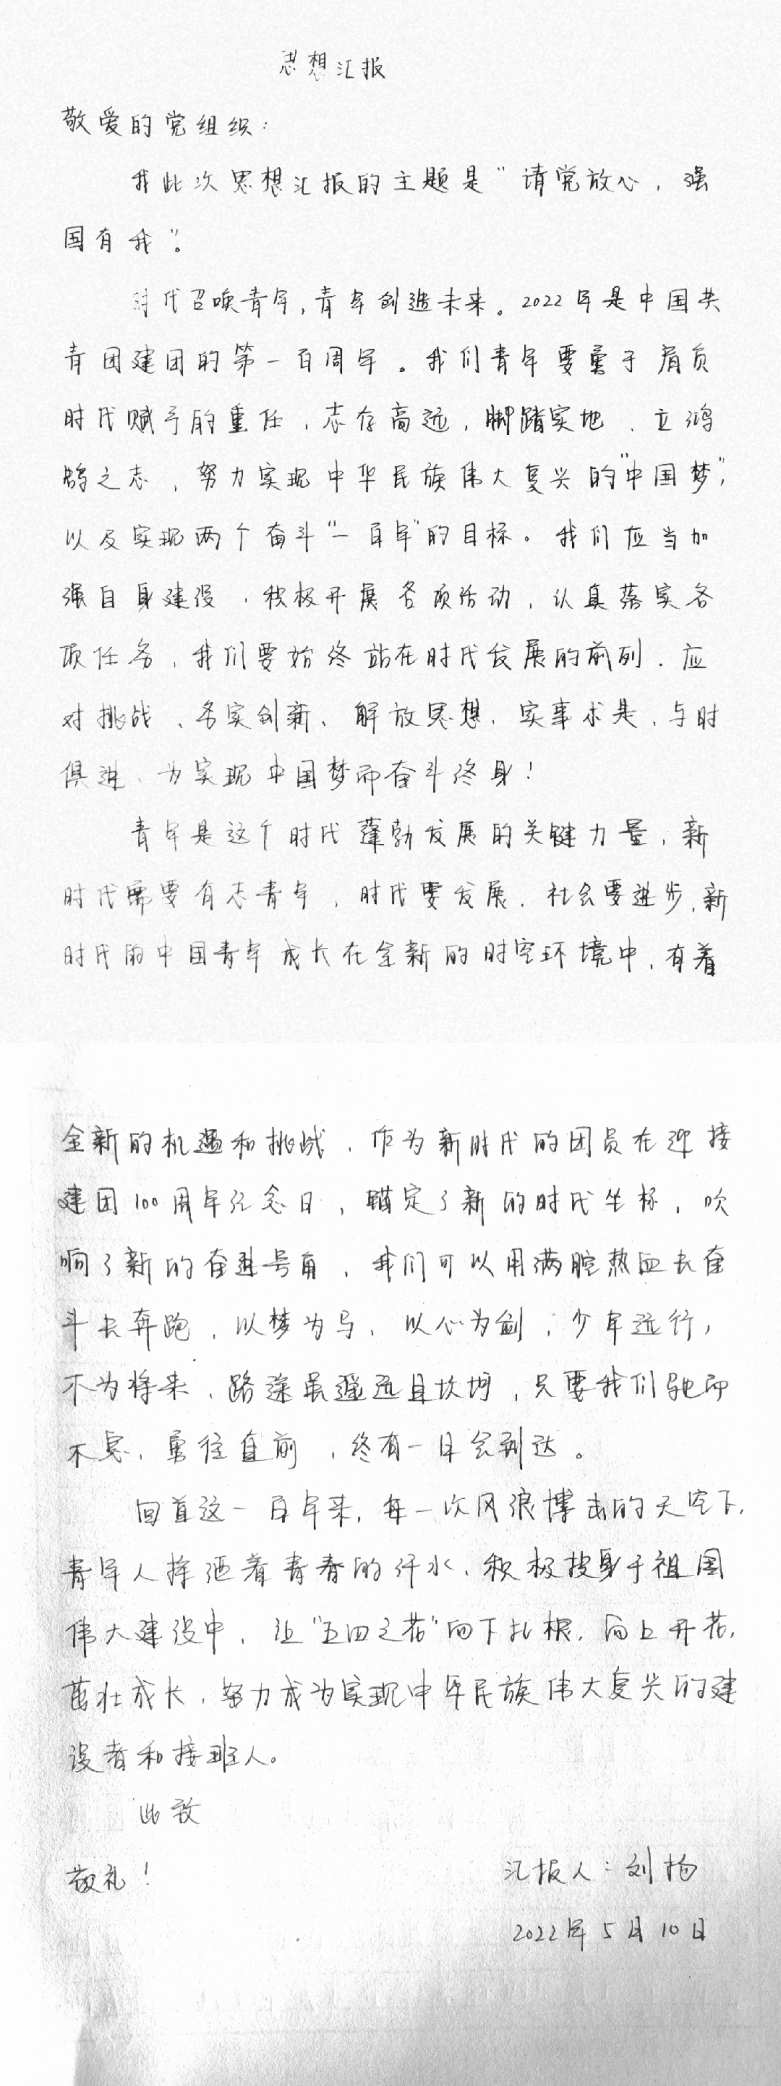 思想汇报
敬爱的党组织：
我此次思想汇报的主题是"请党放心，强
国有我"。
时代召唤青年，青年创造未来。2022年是中国共
青团建团的第一百周年。我们青年要勇于肩负
时代赋予的重任，志存高远，脚踏实地，立鸿
鹄之志，努力实现中华民族伟大复兴的"中国梦"，
以及实现两个奋斗"一百年"的目标。我们应当加
强自身建设，积极开展各项活动，认真落实各
项任务，我们要始终站在时代发展的前列，应
对挑战、务实创新、解放思想，实事求是，与时
俱进，为实现中国梦而奋斗终身！
青年是这个时代蓬勃发展的关键力量，新
时代需要有志青年，时代要发展，社会要进步，新
时代的中国青年成长在全新的时空环境中，有着
全新的机遇和挑战，作为新时代的团员在迎接
建团100周年纪念日，瞄定了新的时代坐标，吹
响了新的奋进号角，我们可以用满腔热血去奋
斗去奔跑，以梦为马，以心为剑，少年远行，
不为将来，路途虽遥远且坎坷，只要我们驰而
不息，勇往直前，终有一日会到达。
回首这一百年来，每一次风浪搏击的天空下，
青年人挥洒着青春的汗水，积极投身于祖国
伟大建设中，让"五四之花"向下扎根，向上开花，
茁壮成长，努力成为实现中华民族伟大复兴的建
设者和接班人。
此致
敬礼！
汇报人：刘扬
2022年5月10日